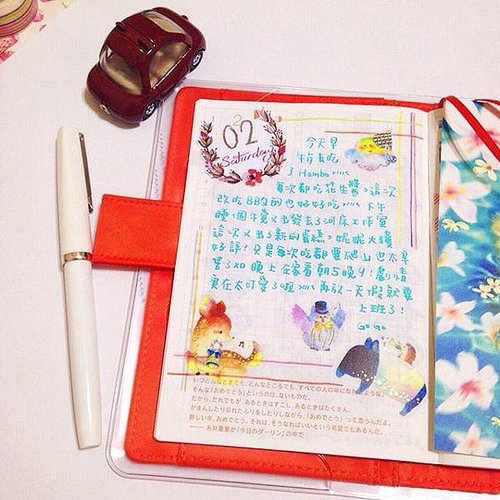 02
Saturday
今天早
午去吃
了 Hambo
每次都吃花生醬,這次
改吃BBQ的也好好吃 下午
睡個午覺又出發去了河床工作室
這次又出了新的蛋糕,妮妮大獲
好評!只是每次吃都要爬山也太辛
苦了XD 晚上在家看朝5晚9!劇情
實在太可愛了啦 再放一天假就要
上班了!
Go go
いつどんなときでも、どんなところでも、すべての人の
そんな「おめでとう」というのは、ないものだ。
だから、だれでもが、あるときはすこし、あるときはたくさん、
がまんしたり忘れたふりをしたりしながら、「おめでとう」って言うんだよ。
新しい年、おめでとう。それは、そうなればいいという希望でもあるんだ。
——糸井重里が『今日のダーリン』の中で